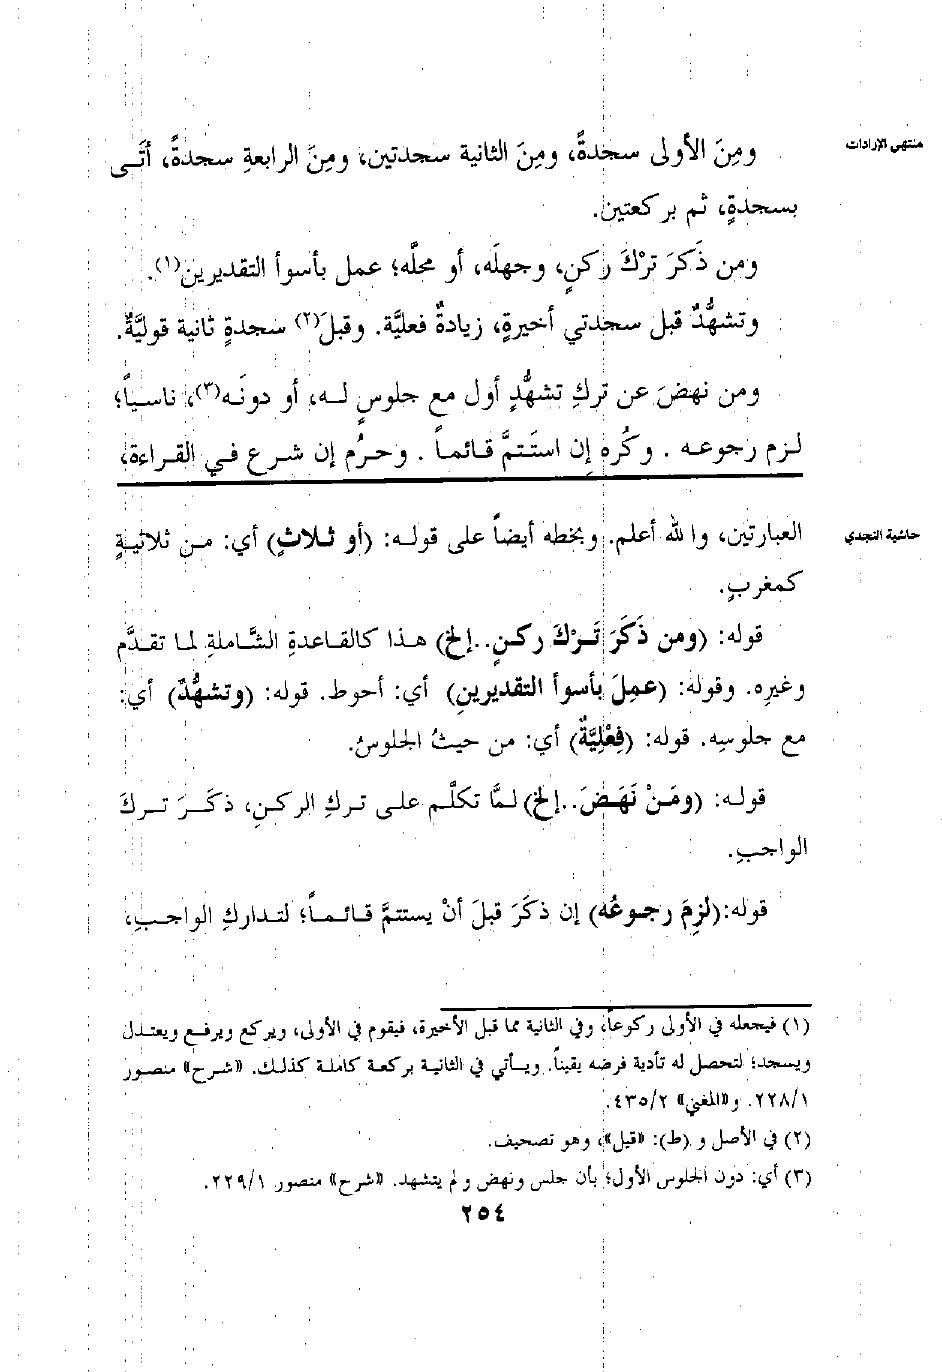 منتهى الإرادات
ومِنَ الأولى سجدةً، ومِنَ الثانية سجدتين، ومِنَ الرابعةِ سجدةً، أتَى
بسجدةٍ، ثم بركعتين.
ومن ذَكرَ ترْكَ ركنٍ، وجهلَه، أو محلَّه؛ عمل بأسوأ التقديرين(١).
وتشهُّدٌ قبل سجدتي أخيرةٍ، زيادةٌ فعليَّة. وقبلَ(٢) سجدةٍ ثانية قوليَّةٌ.
ومن نهضَ عن تركِ تشهُّدٍ أول مع جلوسٍ له، أو دونَه(٣)، ناسياً؛
لزم رجوعه. وكُره إن استَتمَّ قائماً. وحرُم إن شرع في القراءة،
حاشية النجدي
العبارتين، والله أعلم. وبخطه أيضاً على قوله: (أو ثلاثٍ) أي: من ثلاثيةٍ
كمغربٍ.
قوله: (ومن ذَكَرَ تَرْكَ ركنٍ..إلخ) هذا كالقاعدةِ الشَّاملةِ لما تقدَّم
وغيرِه. وقوله: (عمِلَ بأسوأ التقديرينِ) أي: أحوط. قوله: (وتشهُّدٌ) أي:
مع جلوسِه. قوله: (فِعْليَّةٌ) أي: من حيثُ الجلوسُ.
قوله: (ومَنْ نَهَضَ..إلخ) لمَّا تكلَّم على تركِ الركنِ، ذكَرَ تركَ
الواجبِ.
قوله:(لَزِمَ رجوعُه) إن ذكَرَ قبلَ أنْ يستتمَّ قائماً؛ لتداركِ الواجبِ،
(١) فيجعله في الأولى ركوعاً، وفي الثانية مما قبل الأخيرة، فيقوم في الأولى، ويركع ويرفع ويعتدل
ويسجد؛ لتحصل له تأدية فرضه يقيناً. ويأتي في الثانية بركعة كاملة كذلك. «شرح» منصور
٢٢٨/١. و«المغني» ٤٣٥/٢.
(٢) في الأصل و (ط): «قيل»، وهو تصحيف.
(٣) أي: دون الجلوس الأول؛ بأن جلس ونهض ولم يتشهد. «شرح» منصور ٢٢٩/١.
٢٥٤